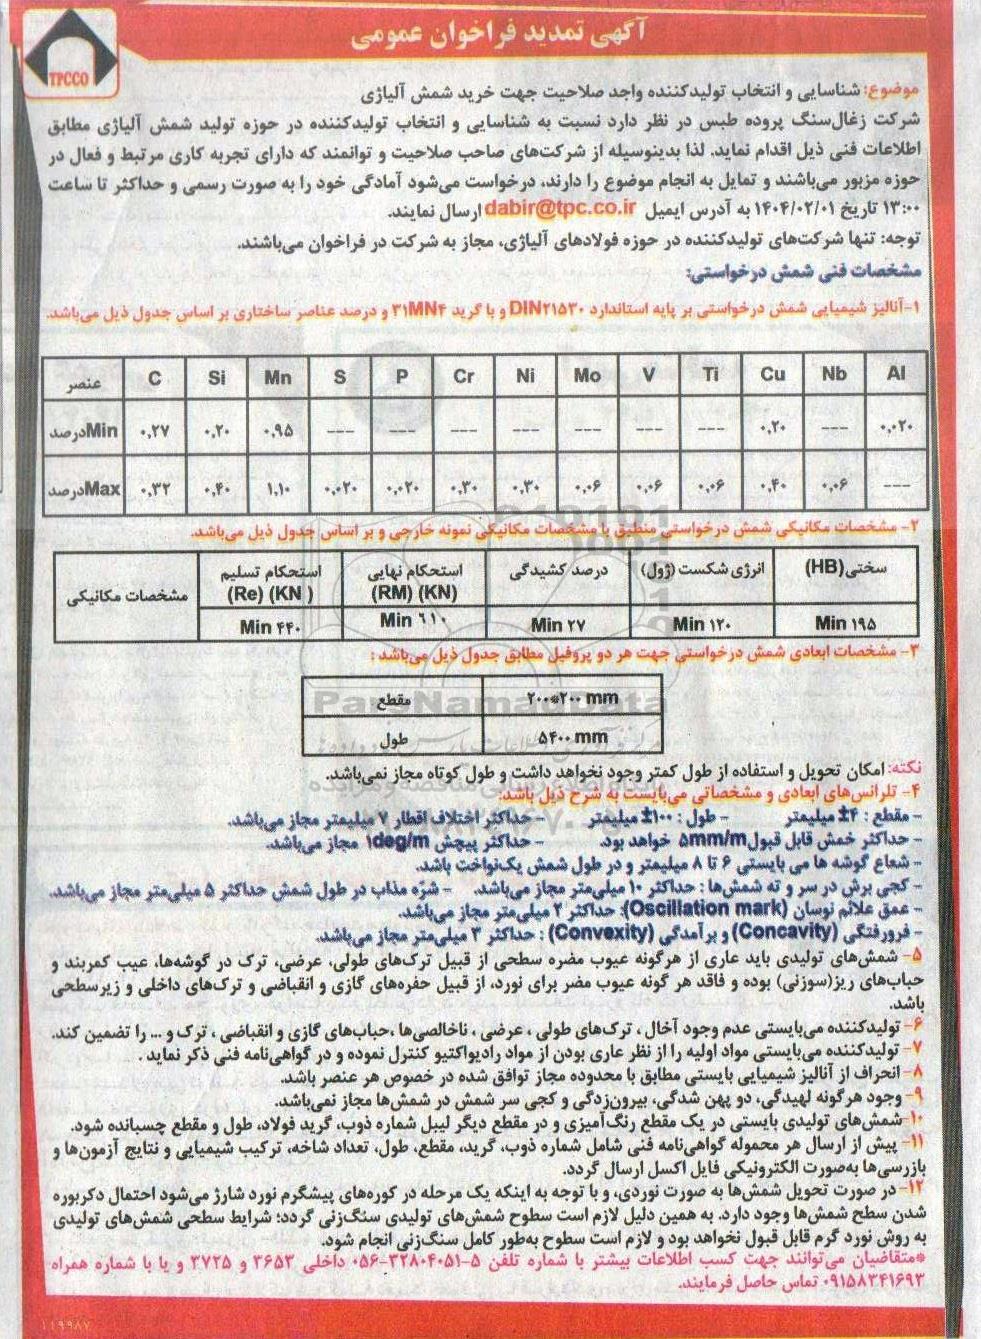 آگهی تمدید فراخوان عمومی
TPCCO
موضوع: شناسایی و انتخاب تولیدکننده واجد صلاحیت جهت خرید شمش آلیاژی
شرکت زغال‌سنگ پروده طبس در نظر دارد نسبت به شناسایی و انتخاب تولیدکننده در حوزه تولید شمش آلیاژی مطابق
اطلاعات فنی ذیل اقدام نماید. لذا بدینوسیله از شرکت‌های صاحب صلاحیت و توانمند که دارای تجربه کاری مرتبط و فعال در
حوزه مزبور می‌باشند و تمایل به انجام موضوع را دارند، درخواست می‌شود آمادگی خود را به صورت رسمی و حداکثر تا ساعت
۱۳:۰۰ تاریخ ۱۴۰۴/۰۲/۰۱ به آدرس ایمیل dabir@tpc.co.ir ارسال نمایند.
توجه: تنها شرکت‌های تولیدکننده در حوزه فولادهای آلیاژی، مجاز به شرکت در فراخوان می‌باشند.
مشخصات فنی شمش درخواستی:
۱-آنالیز شیمیایی شمش درخواستی بر پایه استاندارد DIN۲۱۵۳۰ و با گرید ۳۱MN۴ و درصد عناصر ساختاری بر اساس جدول ذیل می‌باشد.
عنصر C Si Mn S P Cr Ni Mo V Ti Cu Nb Al
Minدرصد ۰,۲۷ ۰,۲۰ ۰,۹۵ --- --- --- --- --- --- --- ۰,۲۰ --- ۰,۰۲۰
Maxدرصد ۰,۳۲ ۰,۴۰ ۱,۱۰ ۰,۰۲۰ ۰,۰۲۰ ۰,۳۰ ۰,۳۰ ۰,۰۶ ۰,۰۶ ۰,۰۶ ۰,۴۰ ۰,۰۶ ---
۲- مشخصات مکانیکی شمش درخواستی منطبق با مشخصات مکانیکی نمونه خارجی و بر اساس جدول ذیل می‌باشد.
سختی(HB) انرژی شکست (ژول) درصد کشیدگی استحکام نهایی (RM) (KN) استحکام تسلیم (Re) (KN) مشخصات مکانیکی
Min ۱۹۵ Min ۱۲۰ Min ۲۷ Min ۶۱۰ Min ۴۴۰
۳- مشخصات ابعادی شمش درخواستی جهت هر دو پروفیل مطابق جدول ذیل می‌باشد :
مقطع ۲۰۰*۲۰۰ mm
طول ۵۴۰۰ mm
ParsNamadData
نکته: امکان تحویل و استفاده از طول کمتر وجود نخواهد داشت و طول کوتاه مجاز نمی‌باشد.
۴- تلرانس‌های ابعادی و مشخصاتی می‌بایست به شرح ذیل باشد:
- مقطع : ۴± میلیمتر - طول : ۱۰۰± میلیمتر - حداکثر اختلاف اقطار ۷ میلیمتر مجاز می‌باشد.
- حداکثر خمش قابل قبول ۵mm/m خواهد بود. - حداکثر پیچش ۱deg/m مجاز می‌باشد.
- شعاع گوشه ها می بایستی ۶ تا ۸ میلیمتر و در طول شمش یک‌نواخت باشد.
- کجی برش در سر و ته شمش‌ها : حداکثر ۱۰ میلی‌متر مجاز می‌باشد. - شرّه مذاب در طول شمش حداکثر ۵ میلی‌متر مجاز می‌باشد.
- عمق علائم نوسان (Oscillation mark): حداکثر ۲ میلی‌متر مجاز می‌باشد.
- فرورفتگی (Concavity) و برآمدگی (Convexity) : حداکثر ۳ میلی‌متر مجاز می‌باشد.
۵- شمش‌های تولیدی باید عاری از هرگونه عیوب مضره سطحی از قبیل ترک‌های طولی، عرضی، ترک در گوشه‌ها، عیب کمربند و
حباب‌های ریز(سوزنی) بوده و فاقد هر گونه عیوب مضر برای نورد، از قبیل حفره‌های گازی و انقباضی و ترک‌های داخلی و زیرسطحی
باشد.
۶- تولیدکننده می‌بایستی عدم وجود آخال ، ترک‌های طولی ، عرضی ، ناخالصی‌ها ،حباب‌های گازی و انقباضی ، ترک و ... را تضمین کند.
۷- تولیدکننده می‌بایستی مواد اولیه را از نظر عاری بودن از مواد رادیواکتیو کنترل نموده و در گواهی‌نامه فنی ذکر نماید .
۸- انحراف از آنالیز شیمیایی بایستی مطابق با محدوده مجاز توافق شده در خصوص هر عنصر باشد.
۹- وجود هرگونه لهیدگی، دو پهن شدگی، بیرون‌زدگی و کجی سر شمش در شمش‌ها مجاز نمی‌باشد.
۱۰-شمش‌های تولیدی بایستی در یک مقطع رنگ‌آمیزی و در مقطع دیگر لیبل شماره ذوب، گرید فولاد، طول و مقطع چسبانده شود.
۱۱- پیش از ارسال هر محموله گواهی‌نامه فنی شامل شماره ذوب، گرید، مقطع، طول، تعداد شاخه، ترکیب شیمیایی و نتایج آزمون‌ها و
بازرسی‌ها به‌صورت الکترونیکی فایل اکسل ارسال گردد.
۱۲- در صورت تحویل شمش‌ها به صورت نوردی، و با توجه به اینکه یک مرحله در کوره‌های پیشگرم نورد شارژ می‌شود احتمال دکربوره
شدن سطح شمش‌ها وجود دارد. به همین دلیل لازم است سطوح شمش‌های تولیدی سنگ‌زنی گردد؛ شرایط سطحی شمش‌های تولیدی
به روش نورد گرم قابل قبول نخواهد بود و لازم است سطوح به‌طور کامل سنگ‌زنی انجام شود.
*متقاضیان می‌توانند جهت کسب اطلاعات بیشتر با شماره تلفن ۵-۰۵۶-۳۲۸۰۴۰۵۱ داخلی ۳۶۵۳ و ۳۷۲۵ و یا با شماره همراه
۰۹۱۵۸۳۴۱۶۹۳ تماس حاصل فرمایند.
۱۱۹۹۸۷